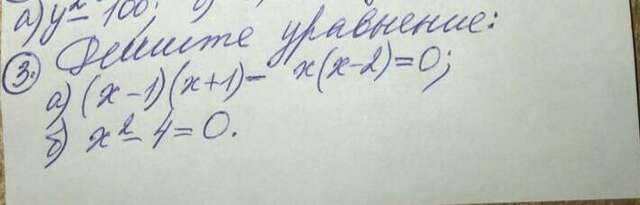 а) y² - 100;
③. Решите уравнение:
а) (x-1)(x+1) - x(x-2)=0;
б) x² - 4 = 0.